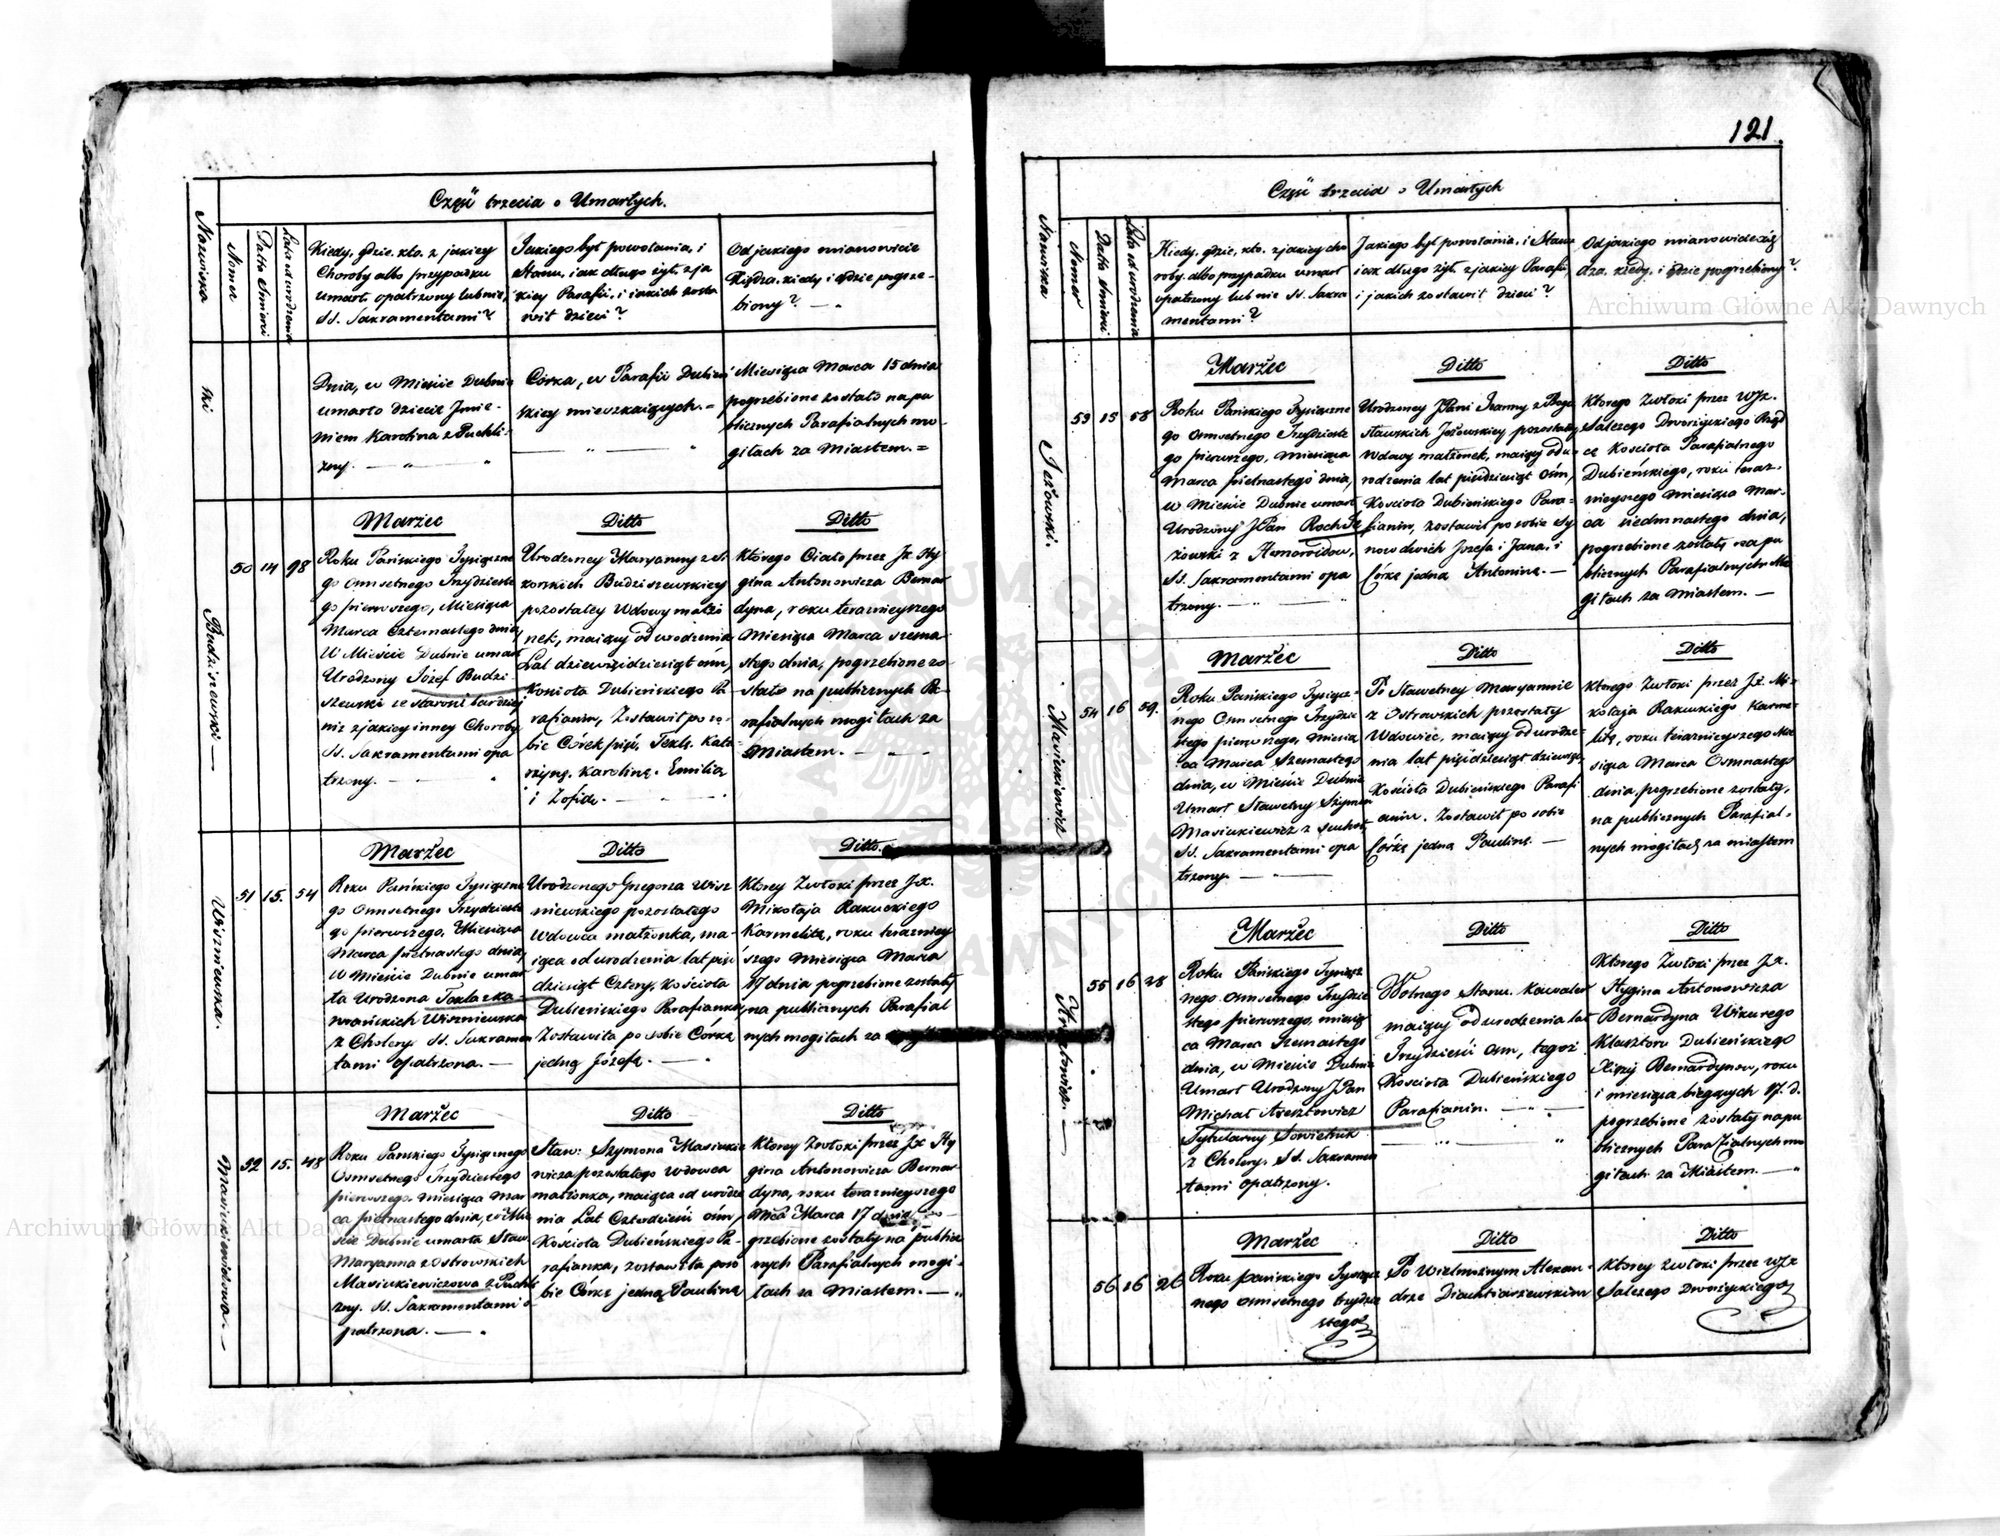 Część trzecia o Umarłych.
Nazwiska
Numer
Datta śmierci
Lata od urodzenia
Kiedy, gdzie, kto, z jakiey
Choroby albo przypadku
umarł, opatrzony lub nie,
SS. Sakramentami?
Jakiego był powołania, i
Stanu, jak długo żył, z ja
kiey Parafii, i jakich zosta
wił dzieci?
Od jakiego mianowicie
Xiędza, kiedy i gdzie pogrze-
biony? —
ski
Dnia, w Mieście Dubnie
umarło dziecie Jmie-
niem Karolina z Puchli-
zny. —
Córka, w Parafii Dubień
skiey mieszkaiących. =
Miesiąca Marca 15 dnia
pogrzebione zostało na pu
blicznych Parafialnych mo-
giłach za Miastem. =
Budziszewski
50 14 98
Marzec
Roku Pańskiego Tysiączne
go Osmsetnego Trzydzieste
go pierwszego, Miesiąca
Marca Czternastego dnia,
W Mieście Dubnie umarł
Urodzony Józef Budzi
szewski ze starości bardziej
niż z jakiey inney Choroby
SS. Sakramentami opa
trzony. —
Ditto
Urodzoney Maryanny z Si
korskich Budziszewskiey
pozostałey Wdowy małżo
nek, maiący od urodzenia
Lat dziewięćdziesiąt ośm,
Kościoła Dubieńskiego Pa
rafianin, Zostawił po so-
bie Córek pięć, Teklę, Kata-
rzynę, Karolinę, Emilią
i Zofią. —
Ditto
Którego Ciało przez Jx. Hy
gina Antonowicza Bernar
dyna, roku teraznieyszego
Miesiąca Marca szesna
stego dnia, pogrzebione zo-
stało na publicznych Pa-
rafialnych mogiłach za
Miastem. —
Wiszniewska
51 15. 54
Marzec
Roku Pańskiego Tysiączne
go Osmsetnego Trzydzieste
go pierwszego, Miesiąca
Marca piętnastego dnia,
W Mieście Dubnie umar
ła Urodzona Tekla z Ka
wańskich Wiszniewska
z Cholery. SS. Sakramen
tami opatrzona. —
Ditto
Urodzonego Grzegorza Wisz
niewskiego pozostałego
Wdowca małżonka, ma-
iąca od urodzenia lat pię
dziesiąt Cztery, Kościoła
Dubieńskiego Parafianka,
Zostawiła po sobie Córkę
jedną Józefę. —
Ditto.
Którey Zwłoki przez Jx.
Mikołaja Rakuckiego
Karmelitę, roku teraźniey
szego Miesiąca Marca
17 dnia pogrzebione zostały
na publicznych Parafial
nych mogiłach za
Masiukiewiczowa. —
52 15. 48
Marzec
Roku Pańskiego Tysiącznego
Osmsetnego Trzydziestego
pierwszego, Miesiąca Mar
ca piętnastego dnia, w Mie
ście Dubnie umarła Sław:
Maryanna z Ostrowskich
Masiukiewiczowa z Puchli
zny. SS. Sakramentami o-
patrzona. —
Ditto
Sław: Szymona Masiukie
wicza pozostałego Wdowca
małżonka, maiąca od urodze
nia Lat Czterdzieści ośm,
Kościoła Dubieńskiego Pa-
rafianka, zostawiła po so
bie Córkę jedną Paulinę
Ditto
Którey Zwłoki przez Jx Hy
gina Antonowicza Bernar
dyna, roku teraznieyszego
Mca Marca 17 dnia po-
grzebione zostały na public
nych Parafialnych mogi-
łach za Miastem. —
121
Część trzecia o Umarłych
Nazwiska
Numer
Datta śmierci
Lata od urodzenia
Kiedy, gdzie, kto, z jakiey cho
roby, albo przypadku umarł
opatrzony lub nie SS. Sakra
mentami?
Jakiego był powołania, i Stanu
iak długo żył, z jakiey Parafii,
i jakich zostawił dzieci?
Od jakiego mianowicie Xię
dza, kiedy, i gdzie pogrzebiony?
Jeżowski.
53 15 58
Marzec
Roku Pańskiego Tysiączne
go Osmsetnego Trzydzieste
go pierwszego, Miesiąca
Marca piętnastego dnia,
w Mieście Dubnie umarł
Urodzony JPan Roch Je
żowski z Hemoroidow,
SS. Sakramentami opa
trzony. —
Ditto
Urodzoney JPani Joanny z Bogu
sławskich Jeżowskiey pozostałey
Wdowy małżonek, maiący od u-
rodzenia lat pięćdziesiąt ośm,
Kościoła Dubieńskiego Para-
fianin, zostawił po sobie Sy
now dwóch Józefa i Jana, i
Córkę jedną Antoninę. —
Ditto
Którego Zwłoki przez WJx.
Salezego Dworzyckiego Rząd
cę Kościoła Parafialnego
Dubieńskiego, roku teraz-
nieyszego miesiąca Mar-
ca siedmnastego dnia,
pogrzebione zostały na pu
blicznych Parafialnych Mo
giłach za miastem. —
Masiukiewicz
54 16 59.
Marzec
Roku Pańskiego Tysiącz-
nego Osmsetnego Trzydzie
stego pierwszego, Miesią
ca Marca Szesnastego
dnia, w Mieście Dubnie
Umarł Sławetny Szymon
Masiukiewicz z Suchot,
SS. Sakramentami opa
trzony. —
Ditto
Po Sławetney Maryannie
z Ostrowskich pozostały
Wdowiec, maiący od urodze-
nia lat pięćdziesiąt dziewięć,
Kościoła Dubieńskiego Parafi
anin. Zostawił po sobie
Córkę jedną Paulinę. —
Ditto
Którego Zwłoki przez Jx. Mi-
kołaja Rakuckiego Karme-
litę, roku teraznieyszego Mie
siąca Marca Osmnastego
dnia, pogrzebione zostały,
na publicznych Parafial-
nych mogiłach za miastem
55 16 28
Marzec
Roku Pańskiego Tysiącz
nego Osmsetnego Trzydzie
stego pierwszego, miesią
ca Marca Szesnastego
dnia, w Mieście Dubnie
Umarł Urodzony JPan
Michał
Tytularny Sowietnik
z Cholery, SS. Sakramen
tami opatrzony.
Ditto
Wolnego Stanu. Kawaler
maiący od urodzenia lat
Trzydzieści ośm, tegoż
Kościoła Dubieńskiego
Parafianin. —
Ditto
Którego Zwłoki przez Jx.
Hygina Antonowicza
Bernardyna Wikarego
Klasztoru Dubieńskiego
Xięży Bernardynow, roku
i miesiąca bieżących 17. d.
pogrzebione zostały na pu
blicznych Parafialnych mo
giłach za Miastem. —
56 16 26
Marzec
Roku pańskiego Tysiącz
nego osmsetnego trzydzie
stego
Ditto
Po Wielmożnym Alexan-
drze
Ditto
Którey zwłoki przez WJx
Salezego Dworzyckiego
Archiwum Główne Akt Dawnych
Archiwum Główne Akt Dawnych